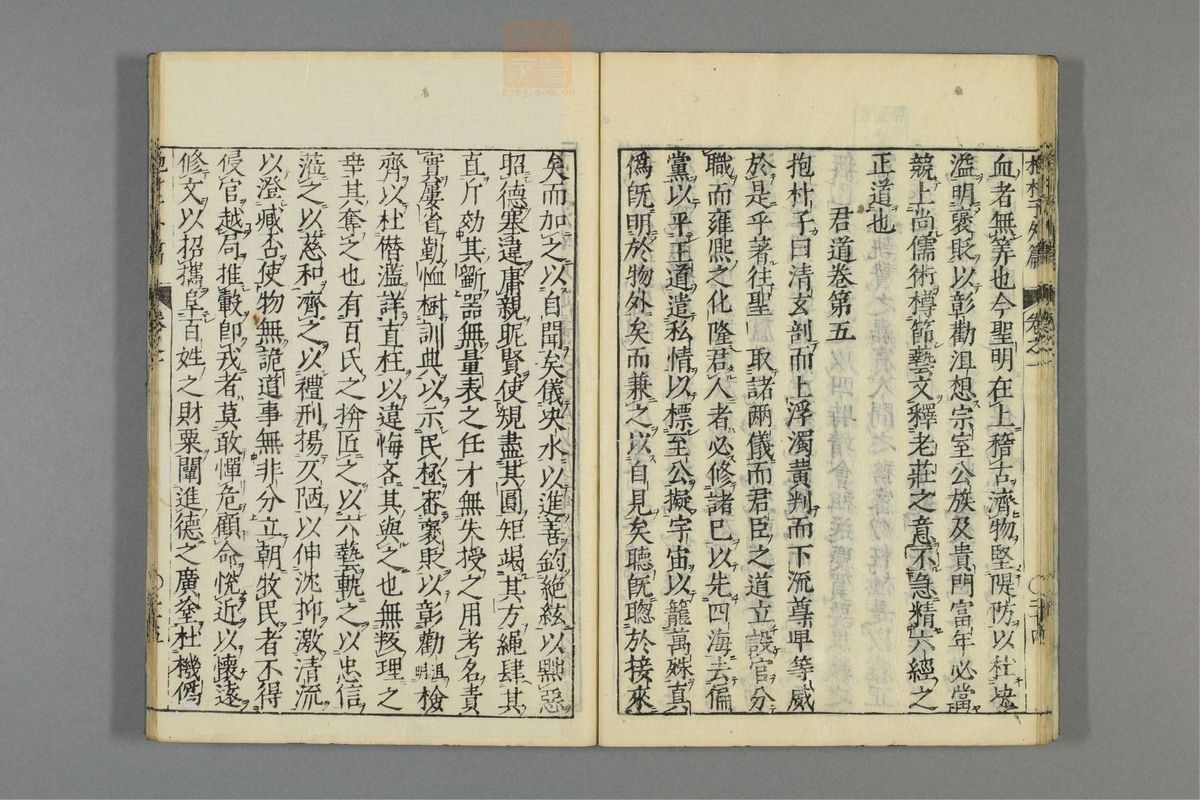 抱朴子外篇 卷之一 二十四
血者無筭也今聖明在上稽古濟物堅隄防以杜決
溢明褒貶以彰勸沮想宗室公族及貴門富年必當
競上尚儒術樽節藝文釋老莊之意不急精六經之
正道也
君道卷第五
抱朴子曰清玄剖而上浮濁黄判而下流尊卑等威
於是乎著往聖取諸兩儀而君臣之道立設官分
職而雍熙之化隆君人者必修諸己以先四海去偏
黨以平王道遣私情以標至公擬宇宙以籠萬殊真
僞既明於物外矣而兼之以自見矣聽既聰於接來
矣而加之以自聞矣儀决水以進善鈞絶絃以黜惡
昭德塞違庸親昵賢使規盡其圓矩竭其方繩肆其
直斤効其斲器無量表之任才無失授之用考名責
實屢省勤恤樹訓典以示民極審褒貶以彰勸沮明檢
齊以杜僣濫詳直枉以違悔吝其與之也無叛理之
幸其奪之也有百氏之揜匠之以六藝軌之以忠信
蒞之以慈和齊之以禮刑揚仄陋以伸沈抑激清流
以澄臧否使物無詭道事無非分立朝牧民者不得
侵官越局推轂即戎者莫敢憚危顧命悅近以懷遠
修文以招攜阜百姓之財粟闡進德之廣塗杜機僞
卷之一